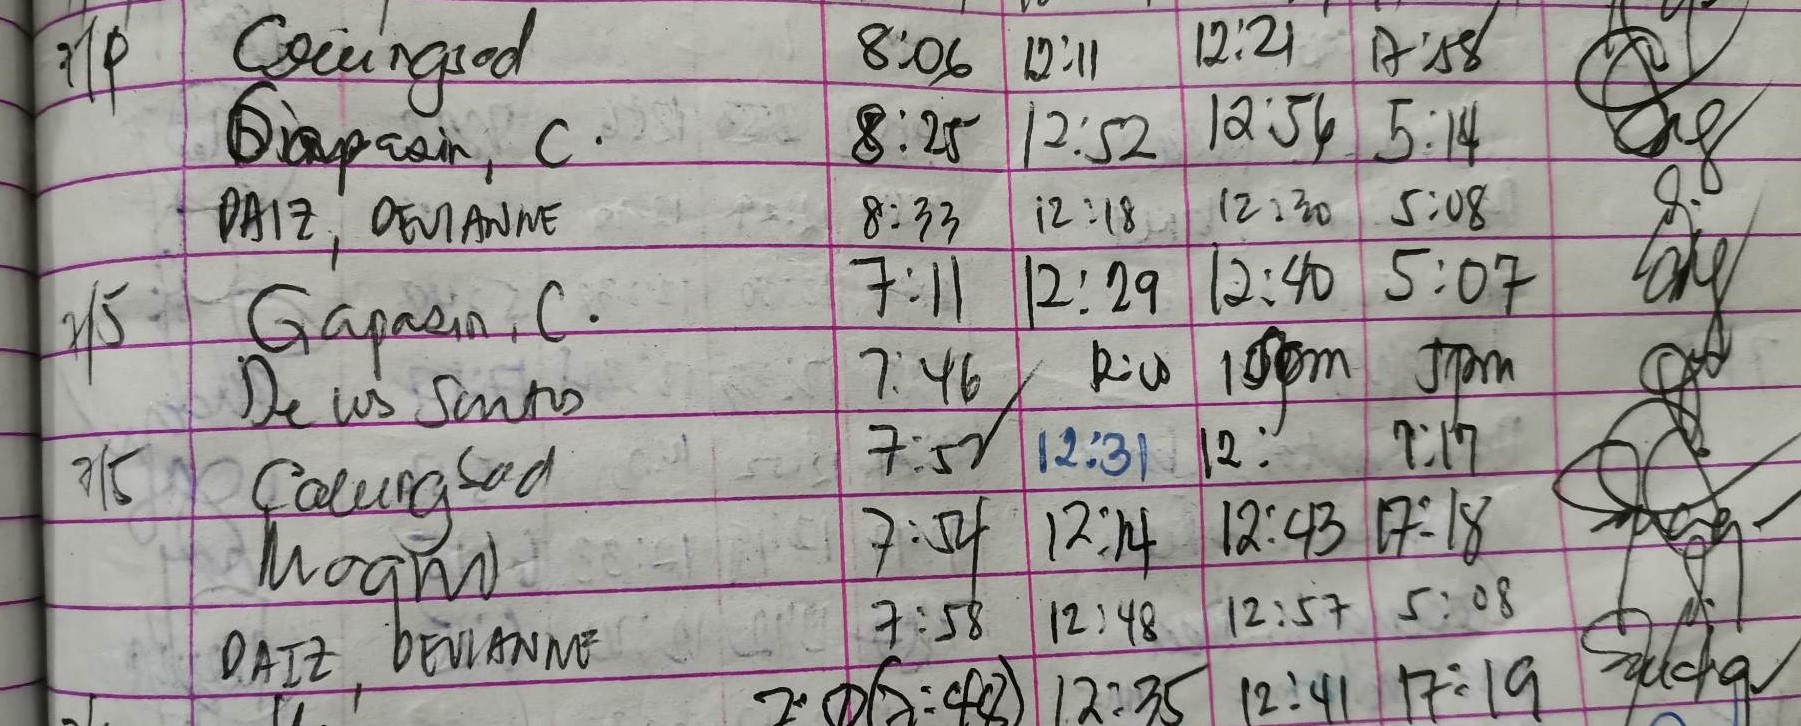 Calungsod 8:06 12:11 12:21 17:58
Gapasin, C. 8:25 12:52 12:56 5:14
DAIZ, DEVIANNE 8:33 12:18 12:30 5:08
7/5 Gapasin, C. 7:11 12:29 12:40 5:07
De los Santos 7:46 5pm
7/5 Calungsod 7:57 12:31 12: 7:17
7:54 12:14 12:43 17:18
DAIZ, DEVIANNE 7:58 12:48 12:57 5:08
12:35 12:41 17:19